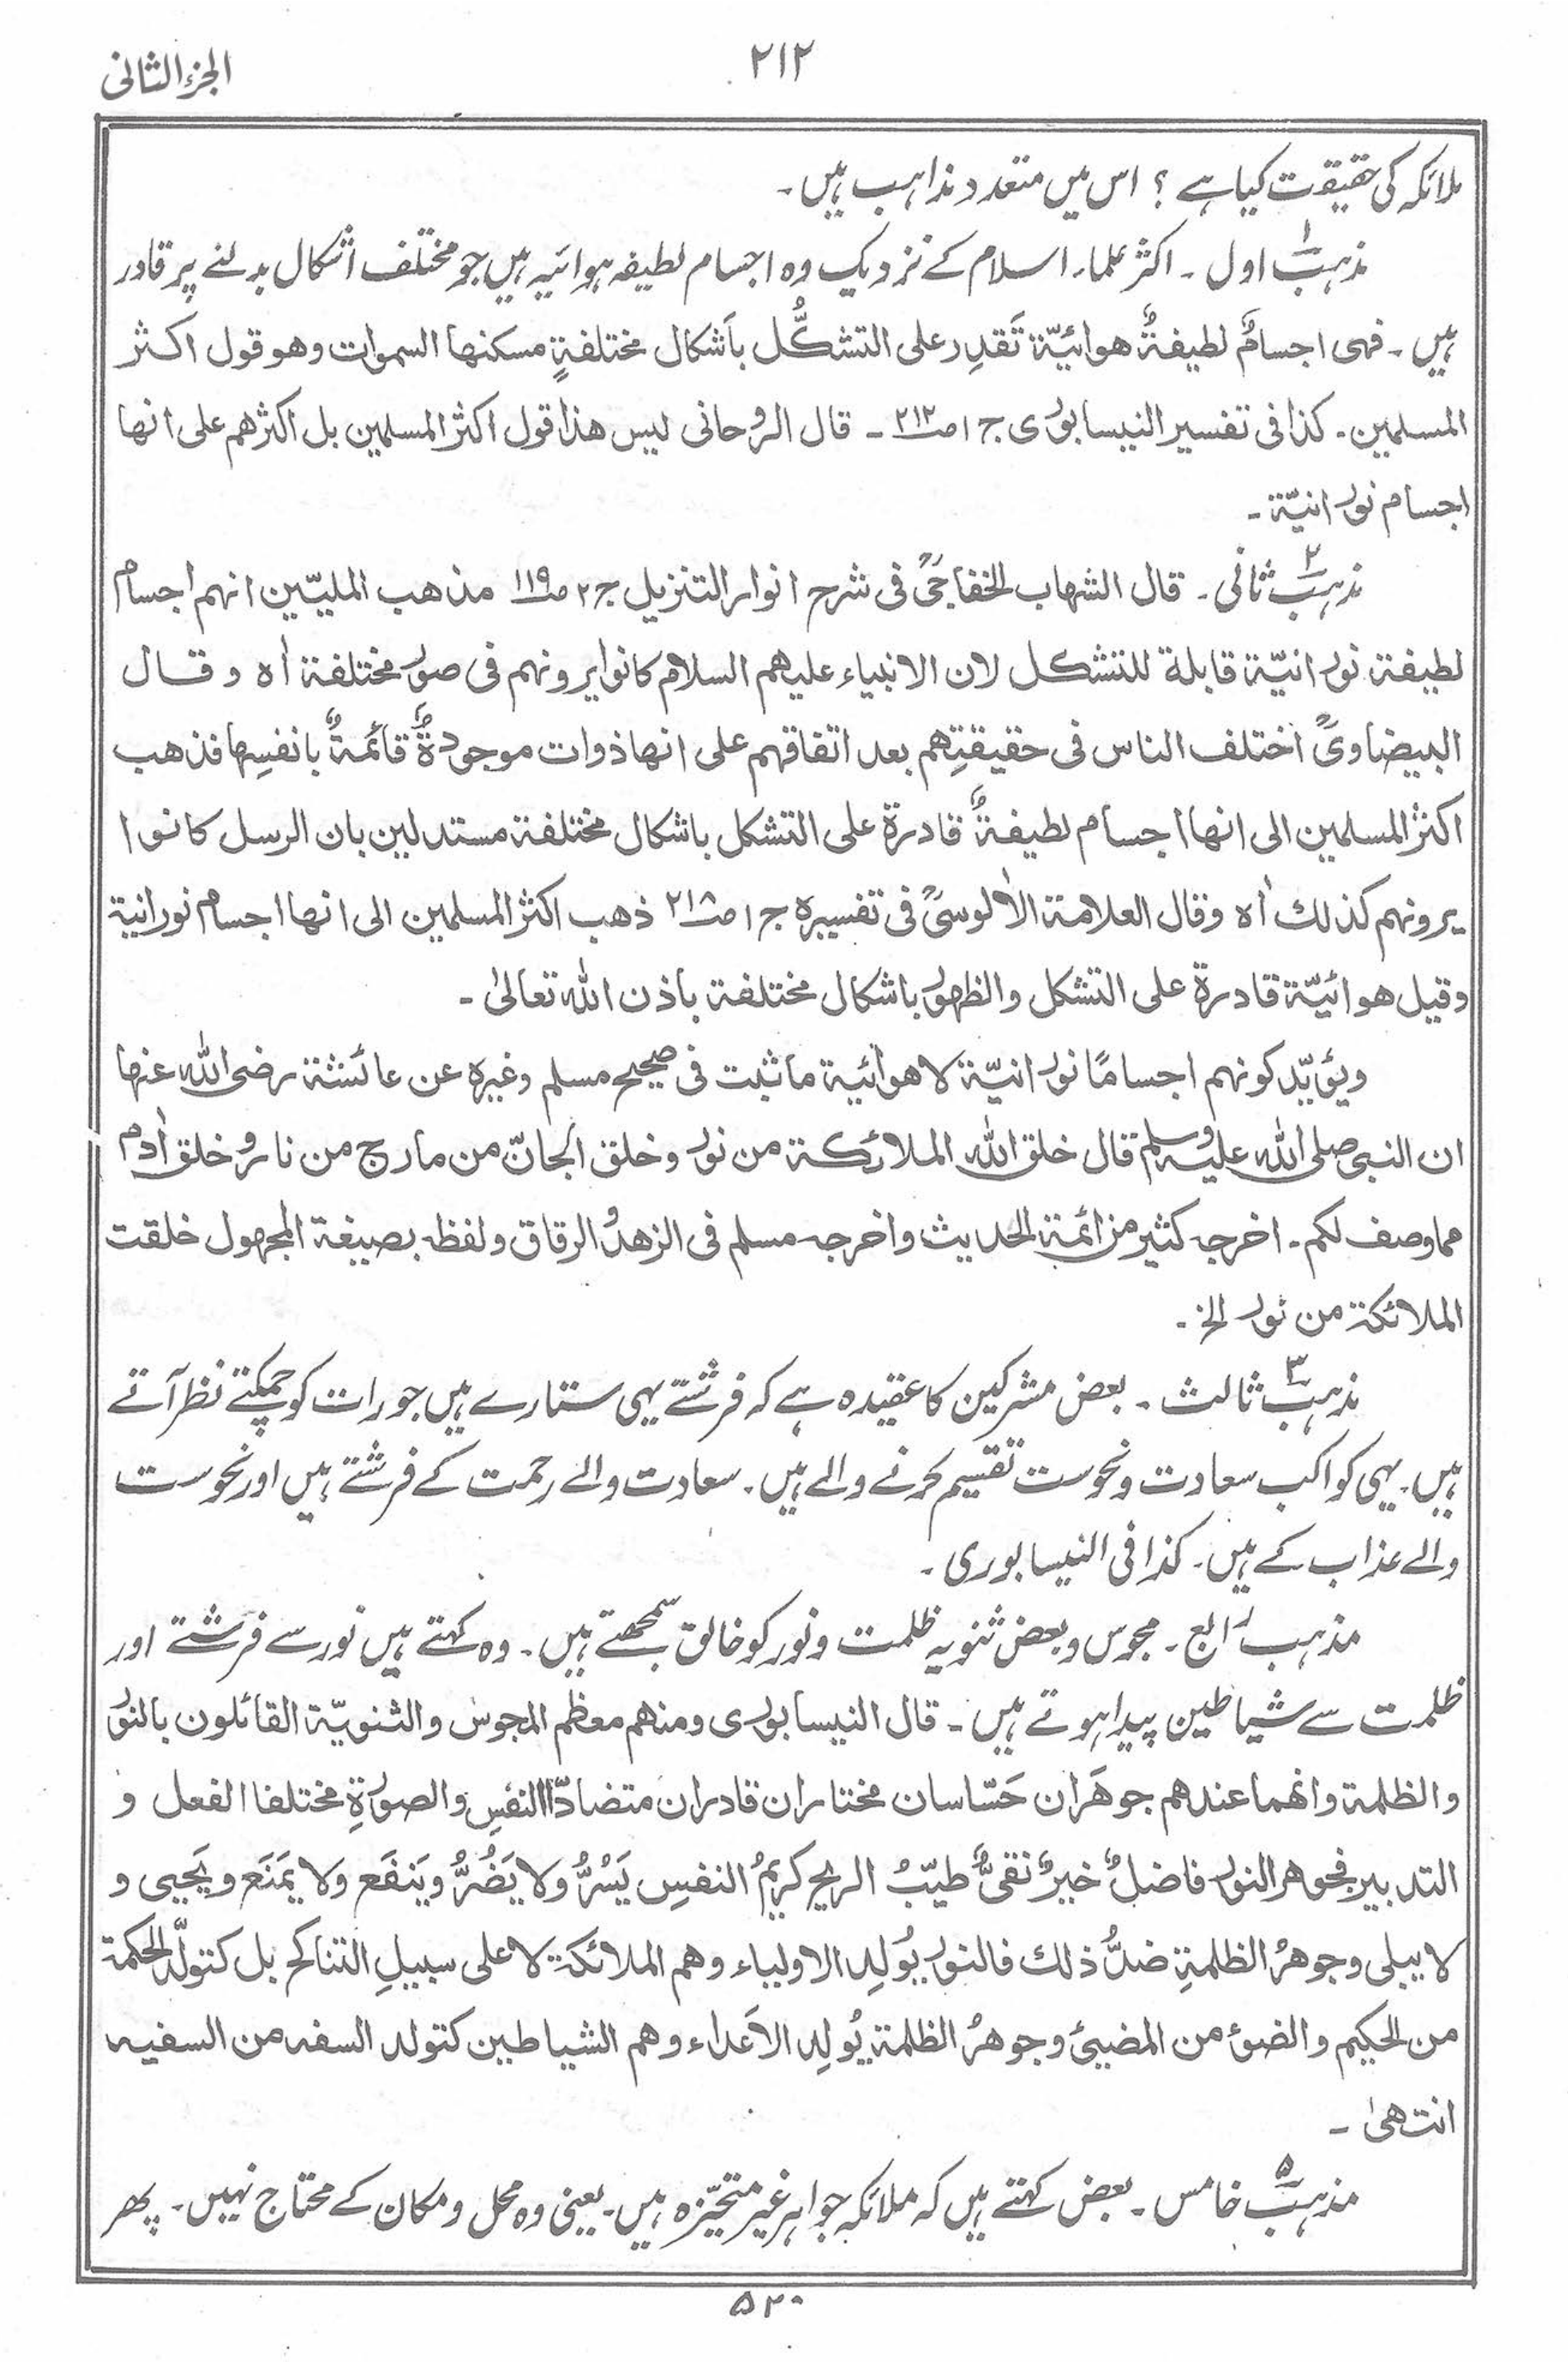 الجزء الثانی
۲۱۲
ملائکہ کی حقیقت کیا ہے ؟ اس میں متعدد مذاہب ہیں۔
مذہب۱ اول ۔ اکثر علماء اسلام کے نزدیک وہ اجسام لطیفہ ہوائیہ ہیں جو مختلف اشکال بدلنے پر قادر
ہیں ۔ فهی اجسامٌ لطیفةٌ هوائیّة تَقدِر علی التشکُّل باَشکال مختلفةٍ مسکنها السموات وهو قول اکثر
المسلمین ۔ کذا فی تفسیر النیسابوری ج ۱ ص۲۱۲ ۔ قال الروحانی لیس هذا قول اکثر المسلمین بل اکثرهم علی انها
اجسام نورانیّة ۔
مذہب۲ ثانی ۔ قال الشهاب الخفاجیؒ فی شرح انوار التنزیل ج ۲ ص۱۱۹ مذهب الملیّین انهم اجسام
لطیفة نورانیّة قابلة للتشکل لان الانبیاء علیهم السلام کانوا یرونهم فی صور مختلفة اه وقال
البیضاویؒ اختلف الناس فی حقیقتِهم بعد اتفاقهم علی انها ذوات موجودةٌ قائمةٌ بانفسِها فذهب
اکثر المسلمین الی انها اجسام لطیفةٌ قادرة علی التشکل باشکال مختلفة مستدلین بان الرسل کانوا
یرونهم کذلك اه وقال العلامة الاٰلوسیؒ فی تفسیره ج ۱ ص۲۱۸ ذهب اکثر المسلمین الی انها اجسام نورانیة
وقیل هوائیّة قادرة علی التشکل والظهور باشکال مختلفة باذن الله تعالیٰ ۔
ویؤیّد کونهم اجسامًا نورانیّة لا هوائیة ما ثبت فی صحیح مسلم وغیره عن عائشة رضی الله عنها
ان النبی صلی الله علیه وسلم قال خلق الله الملائکة من نور وخلق الجانّ من مارج من نار وخلق اٰدم
مما وصف لکم ۔ اخرجه کثیر من ائمة الحدیث واخرجه مسلم فی الزهد والرقاق ولفظه بصیغة المجهول خلقت
الملائکة من نور الخ ۔
مذہب۳ ثالث ۔ بعض مشرکین کا عقیدہ ہے کہ فرشتے یہی ستارے ہیں جو رات کو چمکتے نظر آتے
ہیں ۔ یہی کواکب سعادت ونحوست تقسیم کرنے والے ہیں ۔ سعادت والے رحمت کے فرشتے ہیں اور نحوست
والے عذاب کے ہیں ۔ کذا فی النیسابوری ۔
مذہب رابع ۔ مجوس وبعض ثنویہ ظلمت ونور کو خالق سمجھتے ہیں ۔ وہ کہتے ہیں نور سے فرشتے اور
ظلمت سے شیاطین پیدا ہوتے ہیں ۔ قال النیسابوری ومنهم معظم المجوس والثنویّة القائلون بالنور
والظلمة وانهما عندهم جوهَران حَسّاسان مختاران قادران متضادّا النفسِ والصورةِ مختلفا الفعل و
التدبیر فجوهر النور فاضلٌ خیرٌ نقیٌّ طیّبُ الریح کریمُ النفسِ یَسُرُّ ولا یَضُرُّ ویَنفَع ولا یَمنَع ویَحیی و
لا یبلی وجوهرُ الظلمةِ ضدُّ ذلك فالنور یُولِد الاولیاء وهم الملائکة لا علی سبیلِ التناکح بل کتولّد الحکمة
من الحکیم والضوء من المضیئ وجوهرُ الظلمة یُولِد الاَعداء وهم الشیاطین کتولد السفه من السفیه
انتهیٰ ۔
مذہب۵ خامس ۔ بعض کہتے ہیں کہ ملائکہ جواہر غیر متحیّزہ ہیں ۔ یعنی وہ محل ومکان کے محتاج نہیں ۔ پھر
۵۲۰